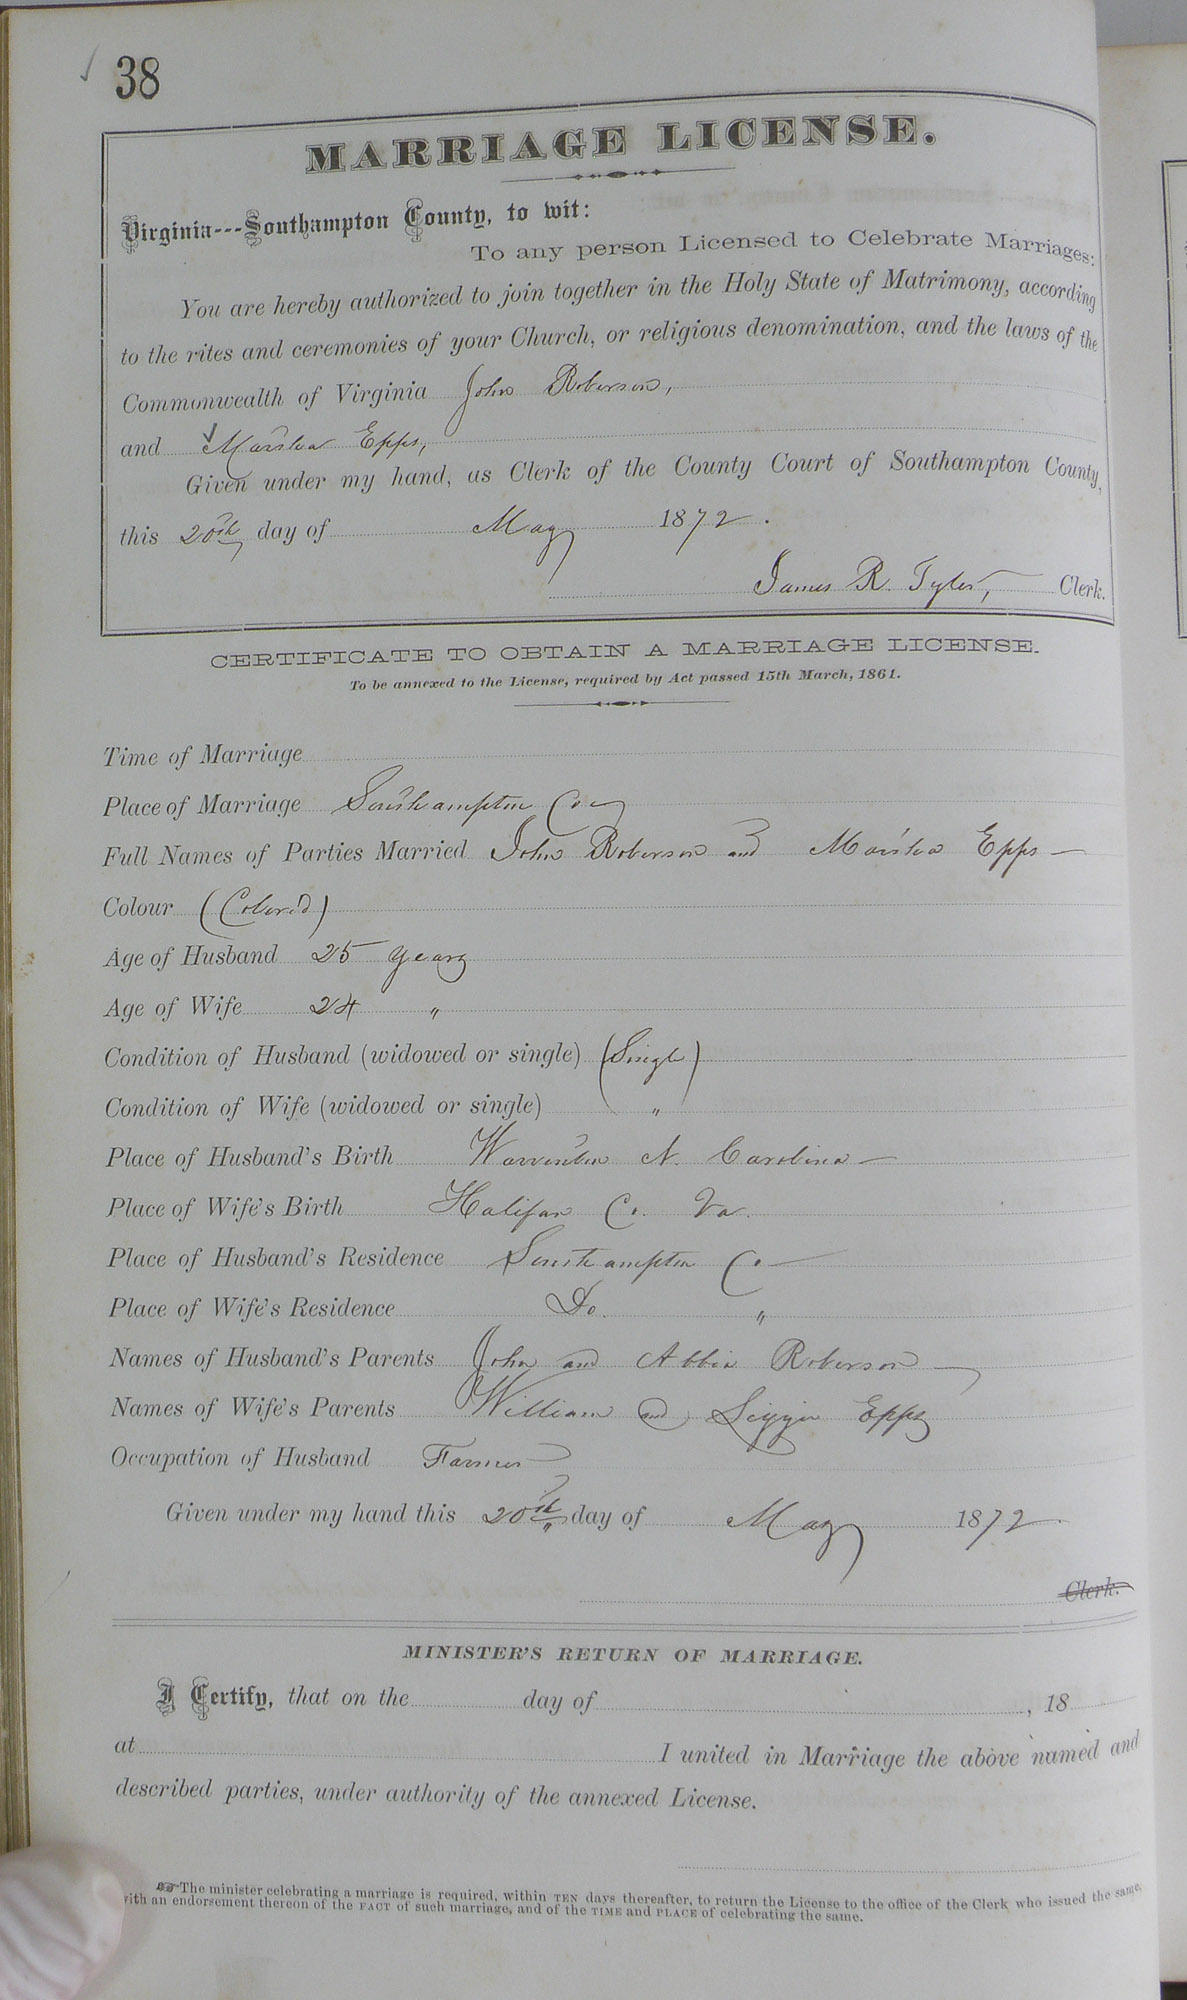 38
MARRIAGE LICENSE.
Virginia---Southampton County, to wit:
To any person Licensed to Celebrate Marriages:
You are hereby authorized to join together in the Holy State of Matrimony, according
to the rites and ceremonies of your Church, or religious denomination, and the laws of the
Commonwealth of Virginia John Roberson,
and Marsha Epps,
Given under my hand, as Clerk of the County Court of Southampton County,
this 20th day of May 1872.
James R. Tyler, Clerk.
CERTIFICATE TO OBTAIN A MARRIAGE LICENSE.
To be annexed to the License, required by Act passed 15th March, 1861.
Time of Marriage
Place of Marriage Southampton Co
Full Names of Parties Married John Roberson and Marsha Epps
Colour (Colored)
Age of Husband 25 years
Age of Wife 24 "
Condition of Husband (widowed or single) (Single)
Condition of Wife (widowed or single) "
Place of Husband's Birth Warrenton N. Carolina
Place of Wife's Birth Halifax Co. Va.
Place of Husband's Residence Southampton Co
Place of Wife's Residence Do. "
Names of Husband's Parents John and Abbia Roberson
Names of Wife's Parents William and Epps
Occupation of Husband Farmer
Given under my hand this 20th day of May 1872.
Clerk.
MINISTER'S RETURN OF MARRIAGE.
I Certify, that on the day of , 18
at I united in Marriage the above named and
described parties, under authority of the annexed License.
The minister celebrating a marriage is required, within TEN days thereafter, to return the License to the office of the Clerk who issued the same,
with an endorsement thereon of the FACT of such marriage, and of the TIME and PLACE of celebrating the same.